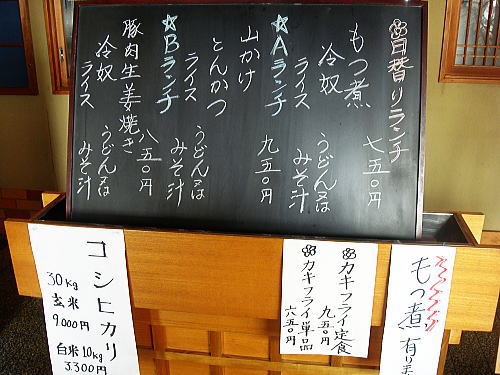 日替りランチ
もつ煮 七五〇円
冷奴 うどん又は
ライス みそ汁
☆Aランチ
山かけ 九五〇円
とんかつ
ライス うどん又は
みそ汁
☆Bランチ
豚肉生姜焼き 八五〇円
冷奴 うどん又は
ライス みそ汁
コシヒカリ
30kg
玄米
9.000円
白米10kg
3.300円
カキフライ定食
九五〇円
カキフライ単品
六五〇円
もつ煮 有り